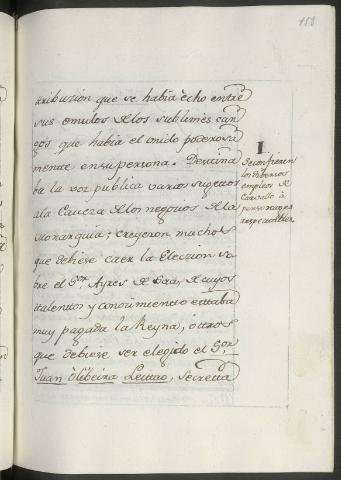 158
tribuzion que se habia echo entre
sus emulos de los sublimes car
gos que habia el onido poderosa
mente en su persona. Destina
ba la voz publica varios sugetos
a la Caveza de los negocios de la
Monarquia; creyeron muchos
que debiese caer la Eleccion so
bre el Sor. Ayres de Saa, de cuyos
talentos y conocimiento estaba
muy pagada la Reyna, ó otros
que debiese ser elegido el Sor.
Juan õ liveira Leittao, Secretta
1
Se confieren
los diversos
empleos de
Carvallo à
personages
respectables